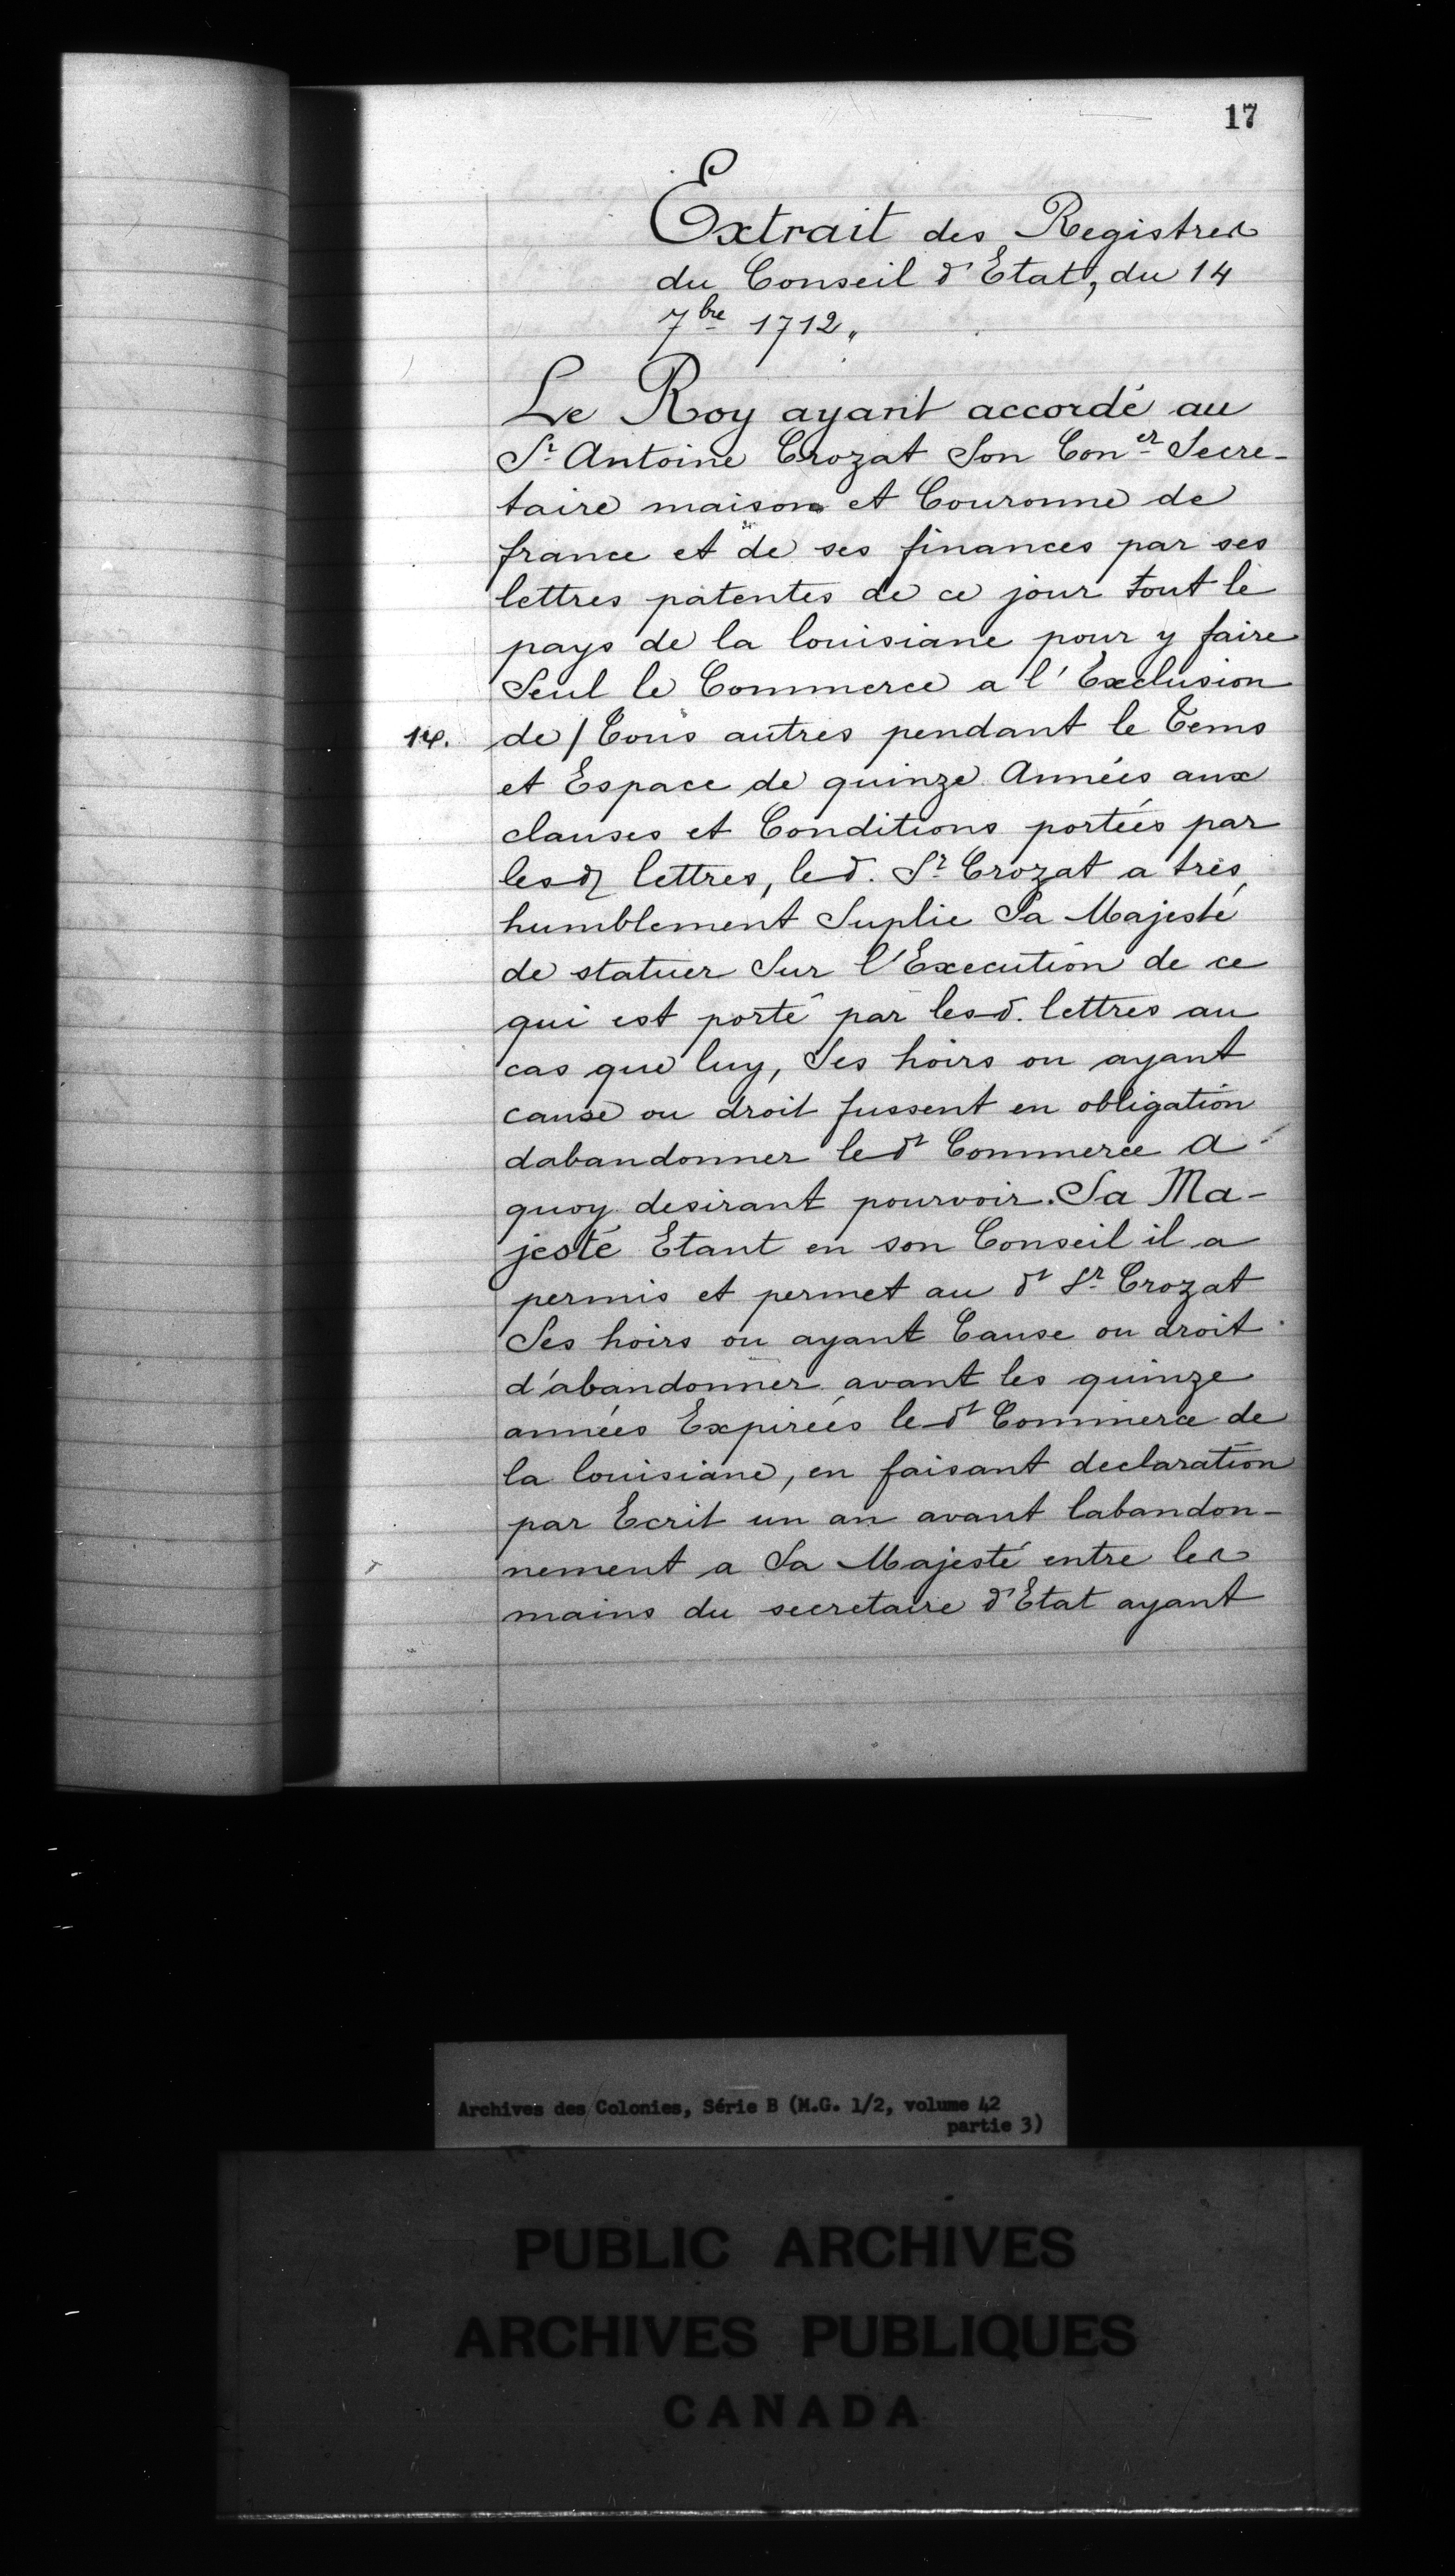 17
Extrait des Registres
du Conseil d'Etat, du 14
7bre 1712.
Le Roy ayant accordé au
Sr Antoine Crozat Son Coner Secre-
taire maison et Couronne de
france et de ses finances par ses
lettres patentes de ce jour tout le
pays de la louisiane pour y faire
Seul le Commerce a l'Exclusion
14. de / Tous autres pendant le Tems
et Espace de quinze Années aux
clauses et Conditions portées par
lesd lettres, le d. Sr Crozat a très
humblement Suplie Sa Majesté
de statuer Sur l'Execution de ce
qui est porté par les d. lettres au
cas que luy, Ses hoirs ou ayant
cause ou droit fussent en obligation
dabandonner le dt Commerce A
quoy desirant pourvoir. Sa Ma-
jesté Etant en son Conseil il a
permis et permet au dt Sr Crozat
Ses hoirs ou ayant Cause ou droit
d'abandonner avant les quinze
années Expirées le dt Commerce de
la louisiane, en faisant declaration
par Ecrit un an avant labandon-
nement a Sa Majesté entre les
mains du secretaire d'Etat ayant
Archives des Colonies, Série B (M.G. 1/2, volume 42
partie 3)
PUBLIC ARCHIVES
ARCHIVES PUBLIQUES
CANADA